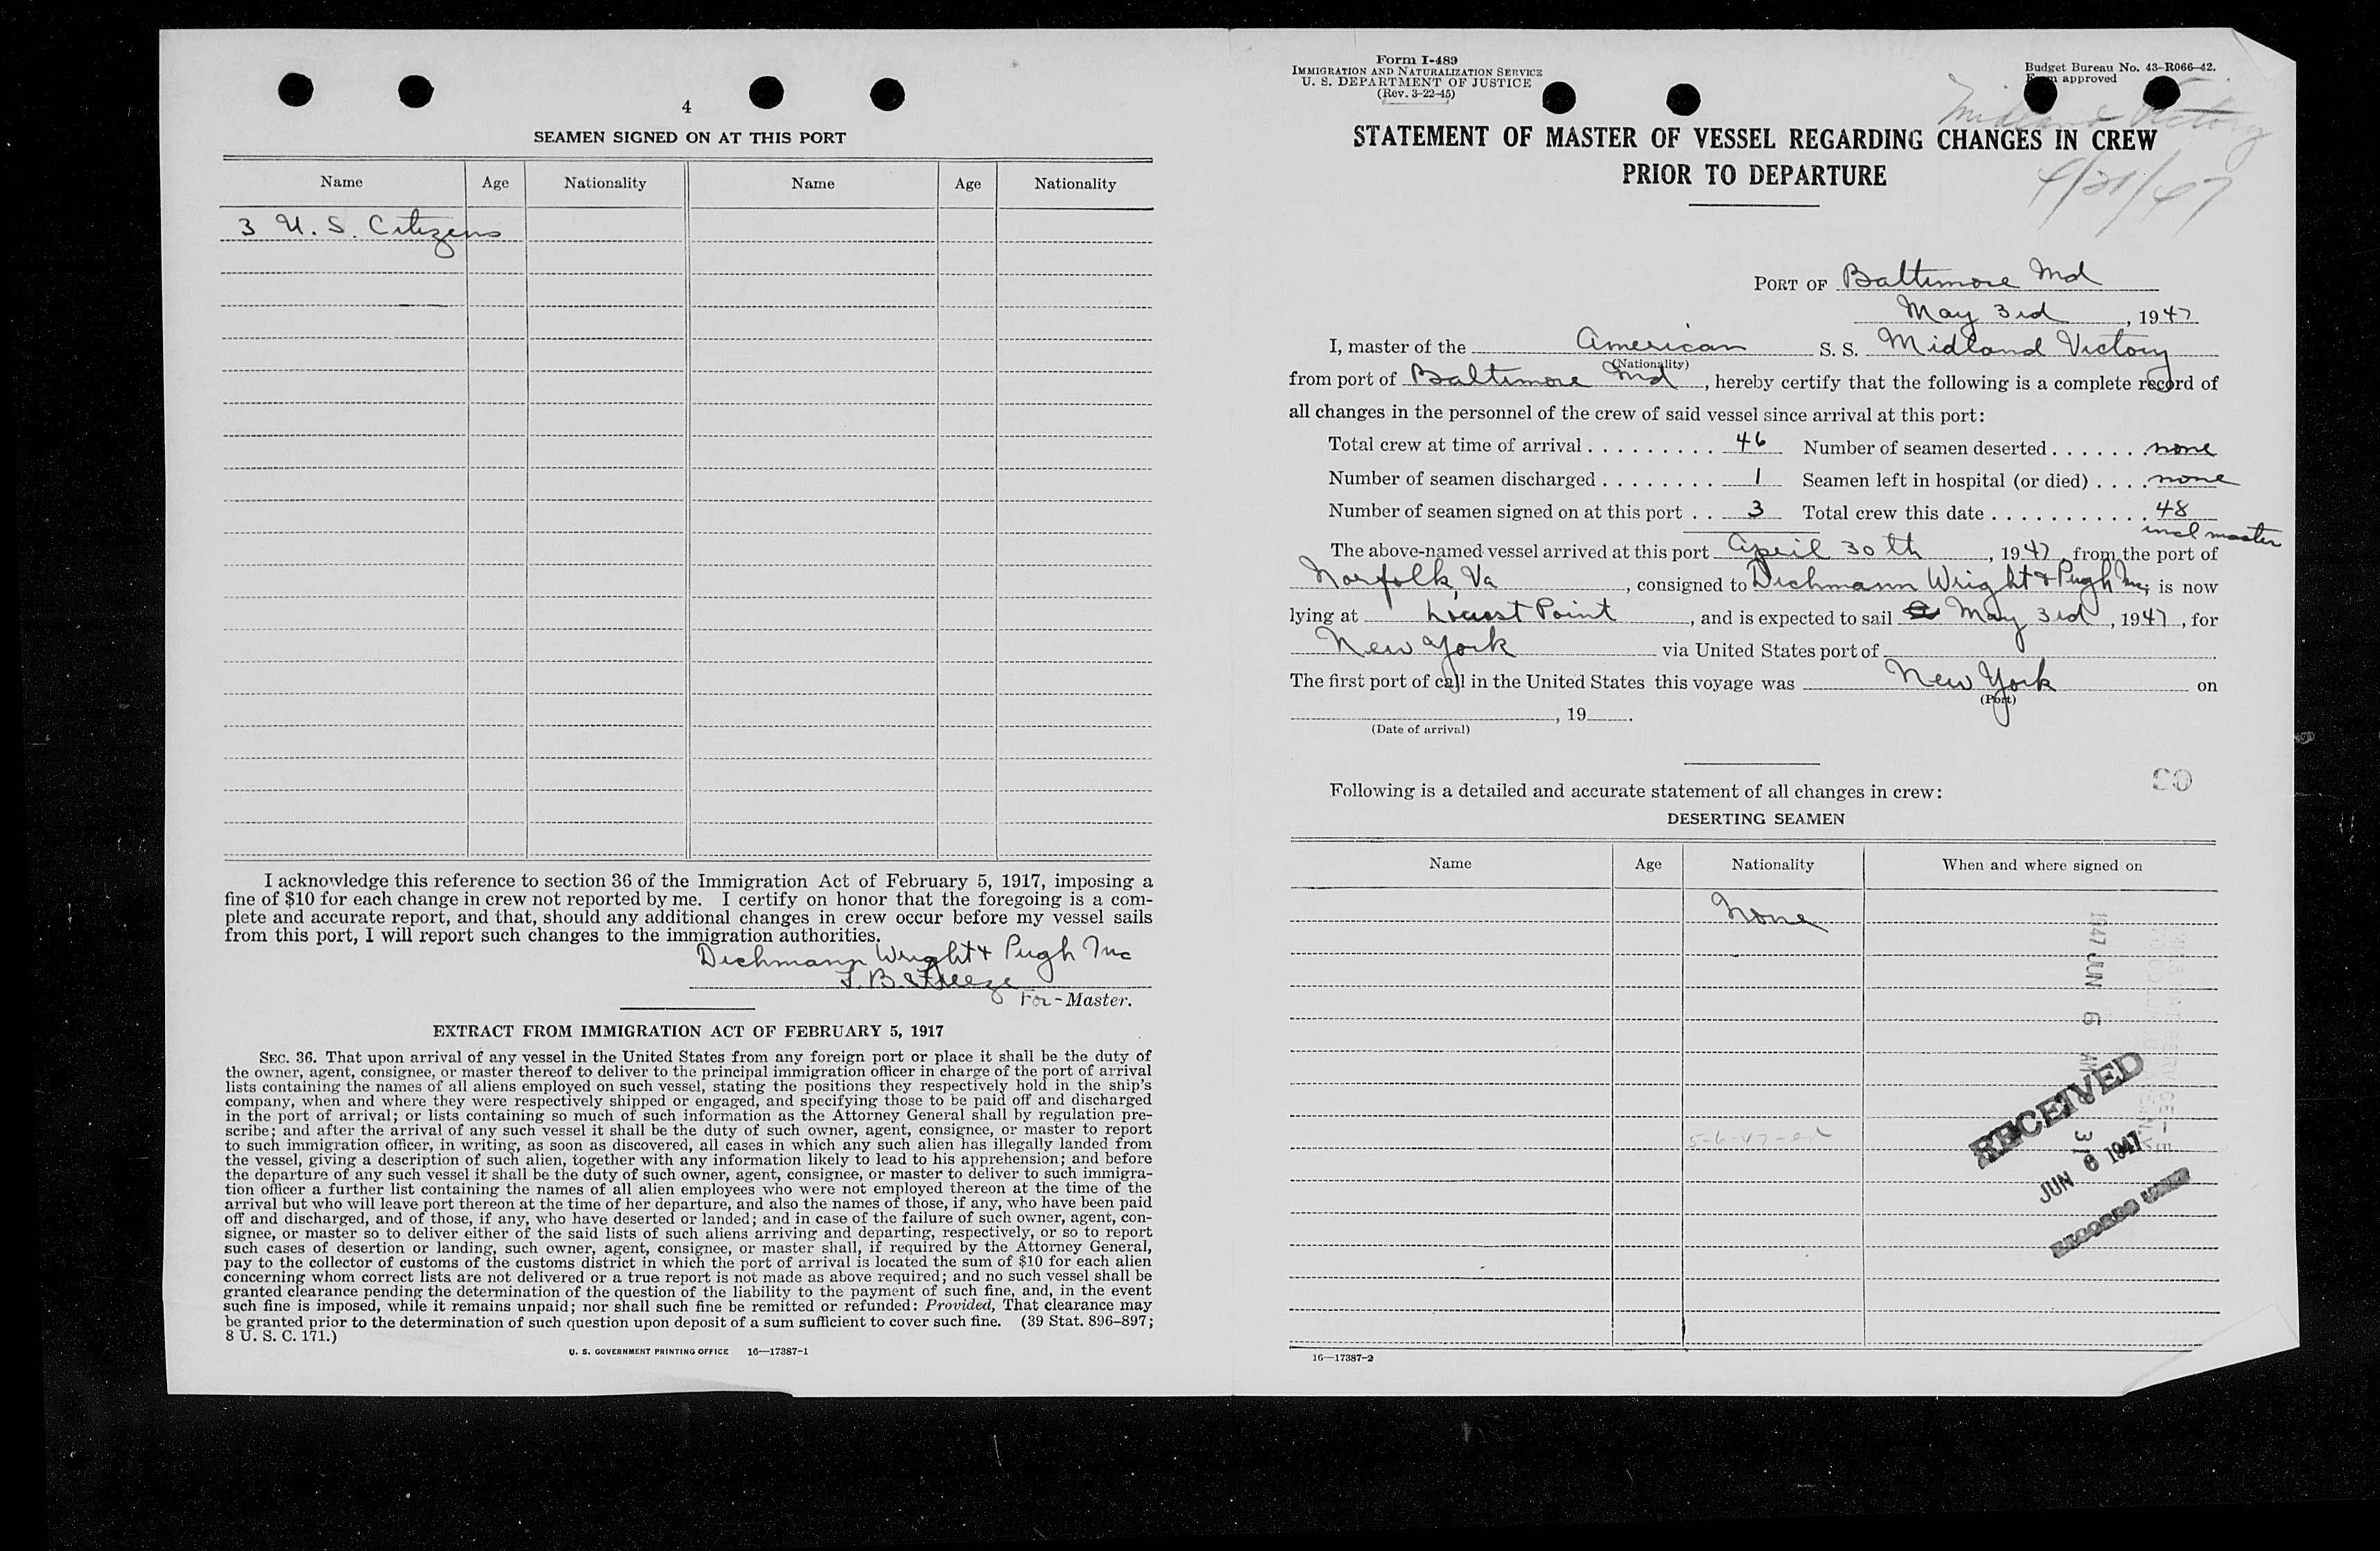 4
SEAMEN SIGNED ON AT THIS PORT
Name Age Nationality Name Age Nationality
3 U. S. Citizens
I acknowledge this reference to section 36 of the Immigration Act of February 5, 1917, imposing a
fine of $10 for each change in crew not reported by me. I certify on honor that the foregoing is a com-
plete and accurate report, and that, should any additional changes in crew occur before my vessel sails
from this port, I will report such changes to the immigration authorities.
Dichmann Wright & Pugh Inc
B. Freeze
For - Master.
EXTRACT FROM IMMIGRATION ACT OF FEBRUARY 5, 1917
SEC. 36. That upon arrival of any vessel in the United States from any foreign port or place it shall be the duty of
the owner, agent, consignee, or master thereof to deliver to the principal immigration officer in charge of the port of arrival
lists containing the names of all aliens employed on such vessel, stating the positions they respectively hold in the ship's
company, when and where they were respectively shipped or engaged, and specifying those to be paid off and discharged
in the port of arrival; or lists containing so much of such information as the Attorney General shall by regulation pre-
scribe; and after the arrival of any such vessel it shall be the duty of such owner, agent, consignee, or master to report
to such immigration officer, in writing, as soon as discovered, all cases in which any such alien has illegally landed from
the vessel, giving a description of such alien, together with any information likely to lead to his apprehension; and before
the departure of any such vessel it shall be the duty of such owner, agent, consignee, or master to deliver to such immigra-
tion officer a further list containing the names of all alien employees who were not employed thereon at the time of the
arrival but who will leave port thereon at the time of her departure, and also the names of those, if any, who have been paid
off and discharged, and of those, if any, who have deserted or landed; and in case of the failure of such owner, agent, con-
signee, or master so to deliver either of the said lists of such aliens arriving and departing, respectively, or so to report
such cases of desertion or landing, such owner, agent, consignee, or master shall, if required by the Attorney General,
pay to the collector of customs of the customs district in which the port of arrival is located the sum of $10 for each alien
concerning whom correct lists are not delivered or a true report is not made as above required; and no such vessel shall be
granted clearance pending the determination of the question of the liability to the payment of such fine, and, in the event
such fine is imposed, while it remains unpaid; nor shall such fine be remitted or refunded: Provided, That clearance may
be granted prior to the determination of such question upon deposit of a sum sufficient to cover such fine. (39 Stat. 896–897;
8 U. S. C. 171.)
U. S. GOVERNMENT PRINTING OFFICE 16—17387-1
Form I-489
IMMIGRATION AND NATURALIZATION SERVICE
U. S. DEPARTMENT OF JUSTICE
(Rev. 3-22-45)
Budget Bureau No. 43-R066-42.
Form approved
Midland Victory
4/21/47
STATEMENT OF MASTER OF VESSEL REGARDING CHANGES IN CREW
PRIOR TO DEPARTURE
PORT OF Baltimore Md
May 3rd, 1947
I, master of the American S. S. Midland Victory
(Nationality)
from port of Baltimore Md, hereby certify that the following is a complete record of
all changes in the personnel of the crew of said vessel since arrival at this port:
Total crew at time of arrival . . . . . . . . . 46 Number of seamen deserted . . . . . . . none
Number of seamen discharged . . . . . . . . 1 Seamen left in hospital (or died) . . . . none
Number of seamen signed on at this port . . 3 Total crew this date . . . . . . . . . . . 48
incl master
The above-named vessel arrived at this port April 30th, 1947, from the port of
Norfolk, Va, consigned to Dichmann Wright & Pugh Inc; is now
lying at Locust Point, and is expected to sail May 3rd, 1947, for
New York via United States port of
The first port of call in the United States this voyage was New York on
(Port)
, 19 .
(Date of arrival)
Following is a detailed and accurate statement of all changes in crew:
DESERTING SEAMEN
Name Age Nationality When and where signed on
None
1947 JUN 6
5-6-47-ed
RECEIVED
JUN 6 1947
RECORDS
16—17387-2